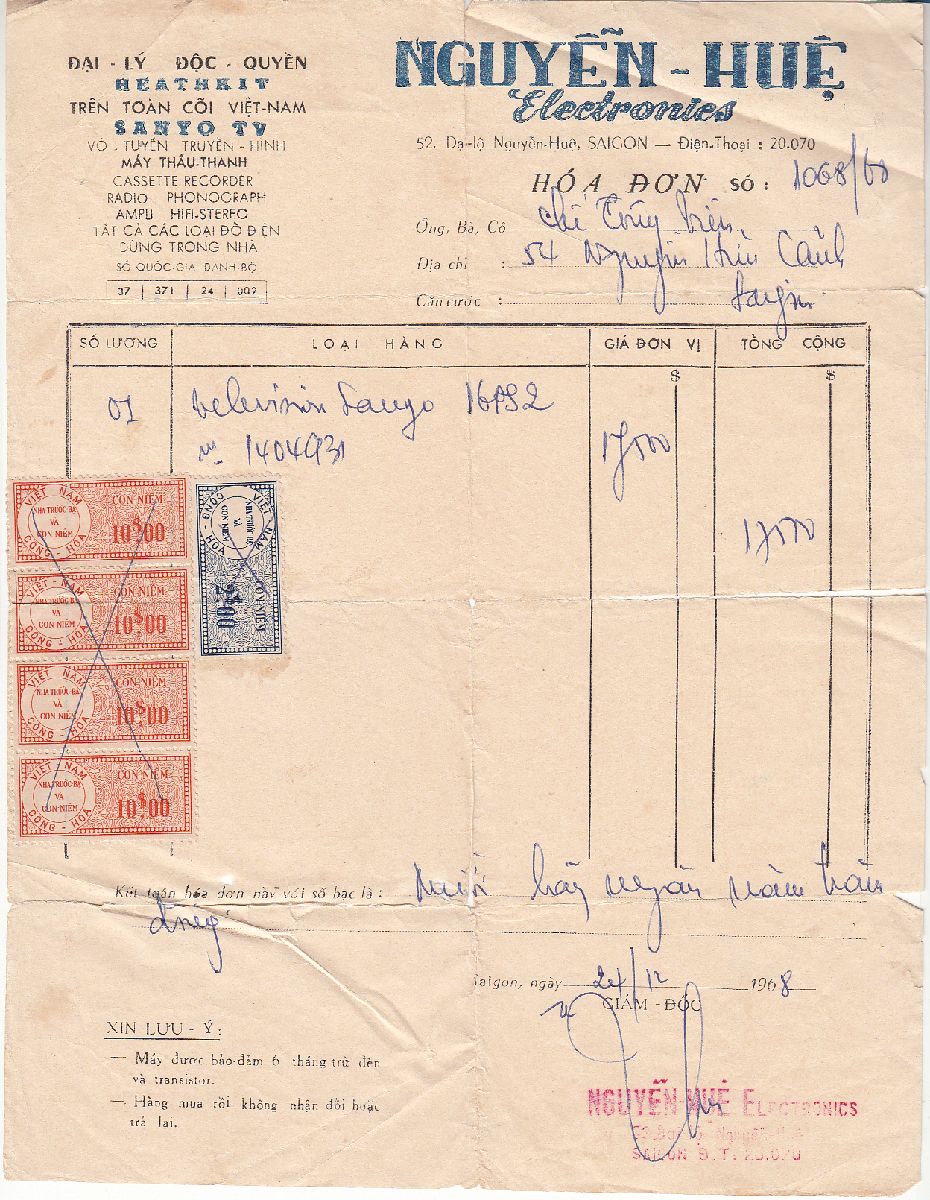 ĐẠI - LÝ ĐỘC - QUYỀN
HEATHKIT
TRÊN TOÀN CÕI VIỆT-NAM
SANYO TV
VÔ - TUYẾN TRUYỀN - HÌNH
MÁY THÂU-THANH
CASSETTE RECORDER
RADIO PHONOGRAPH
AMPLI HIFI-STEREO
TẤT CẢ CÁC LOẠI ĐỒ ĐIỆN
DÙNG TRONG NHÀ
SỐ QUỐC-GIA DANH-BỘ
37 | 371 | 24 | 002
NGUYỄN - HUỆ
Electronics
52, Đại-lộ Nguyễn-Huệ, SAIGON — Điện-Thoại : 20.070
HÓA ĐƠN SỐ : 1068/68
Ông, Bà, Cô
Địa chỉ : 54 Nguyễn Cảnh
Căn cước : Saigon
SỐ LƯỢNG LOẠI HÀNG GIÁ ĐƠN VỊ TỔNG CỘNG
$ $
01 Television Sanyo
1404931
VIỆT NAM CỘNG - HÒA
NHA TRƯỚC-BẠ
VÀ
CON NIÊM
CON NIÊM
10$00
VIỆT NAM CỘNG - HÒA
NHA TRƯỚC-BẠ
VÀ
CON NIÊM
CON NIÊM
10$00
VIỆT NAM CỘNG - HÒA
NHA TRƯỚC-BẠ
VÀ
CON NIÊM
CON NIÊM
10$00
VIỆT NAM CỘNG - HÒA
NHA TRƯỚC-BẠ
VÀ
CON NIÊM
CON NIÊM
10$00
VIỆT NAM CỘNG - HÒA
NHA TRƯỚC BẠ
VÀ
CON NIÊM
CON NIÊM
Kết toán hóa đơn này với số bạc là : Mười bảy ngàn năm trăm
đồng
Saigon, ngày 24/12 1968
GIÁM - ĐỐC
XIN LƯU - Ý :
— Máy được bảo-đảm 6 tháng trừ đèn
và transistor.
— Hàng mua rồi không nhận đổi hoặc
trả lại.
NGUYỄN-HUỆ ELECTRONICS
52, Đại lộ Nguyễn-Huệ
SAIGON Đ.T. 20.070